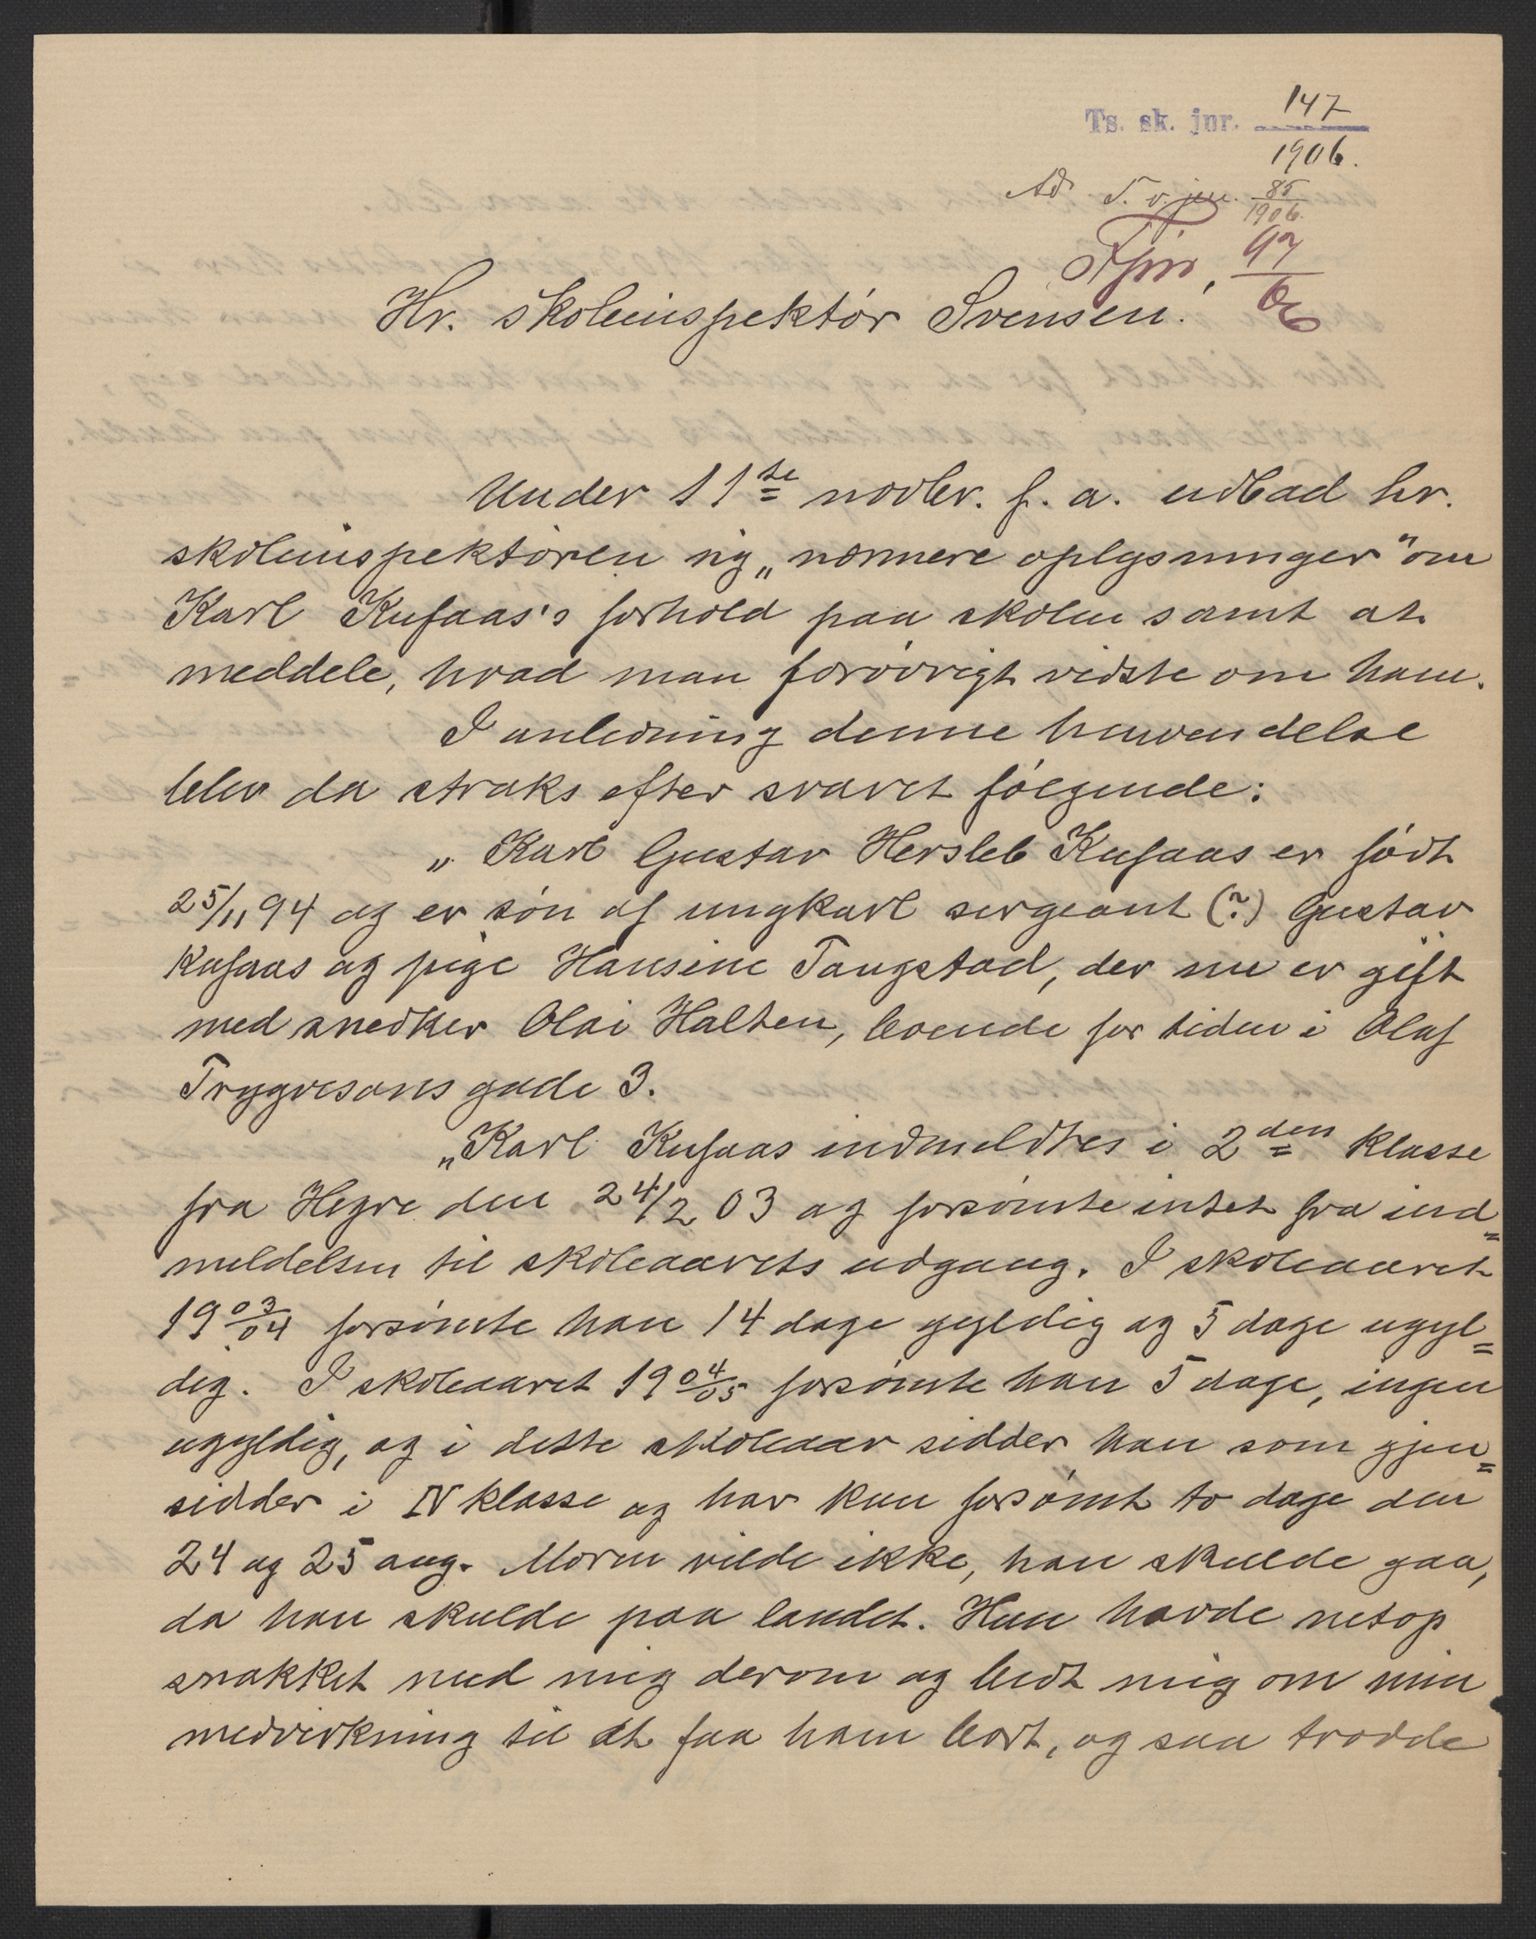 Ts. sk. jnr. 147
1906.
Ad T. v. jnr. 85
1906.
Tjnr. 97
06
Hr. skoleinspektör Svensen!
Under 11te novbr. f. a. udbad hr.
skoleinspektören sig „nærmere oplysninger" om
Karl Kufaas's forhold paa skolen samt at
meddele, hvad man forövrigt vidste om ham.
I anledning denne henvendelse
blev da straks efter svaret fölgende:
„Karl Gustav Hersleb Kufaas er födt
25/11 94 og er sön af ungkarl sergeant (?) Gustav
Kufaas og pige Hansine Tangstad, der nu er gift
med snedker Olai Halten, boende for tiden i Olaf
Trygvesöns gade 3.
„Karl Kufaas indmeldtes i 2den klasse
fra Hegre den 24/2 03 og forsömte intet fra ind=
meldelsen til skoleaarets udgang. I skoleaaret
1903/04 forsömte han 14 dage gyldig og 5 dage ugyl=
dig. I skoleaaret 1904/05 forsömte han 5 dage, ingen
ugyldig, og i dette skoleaar sidder han som gjen=
sidder i IV klasse og har kun forsömt to dage den
24 og 25 aug. Moren vilde ikke, han skulde gaa,
da han skulde paa landet. Hun havde netop
snakket med mig derom og bedt mig om min
medvirkning til at faa ham bort, og saa trodde